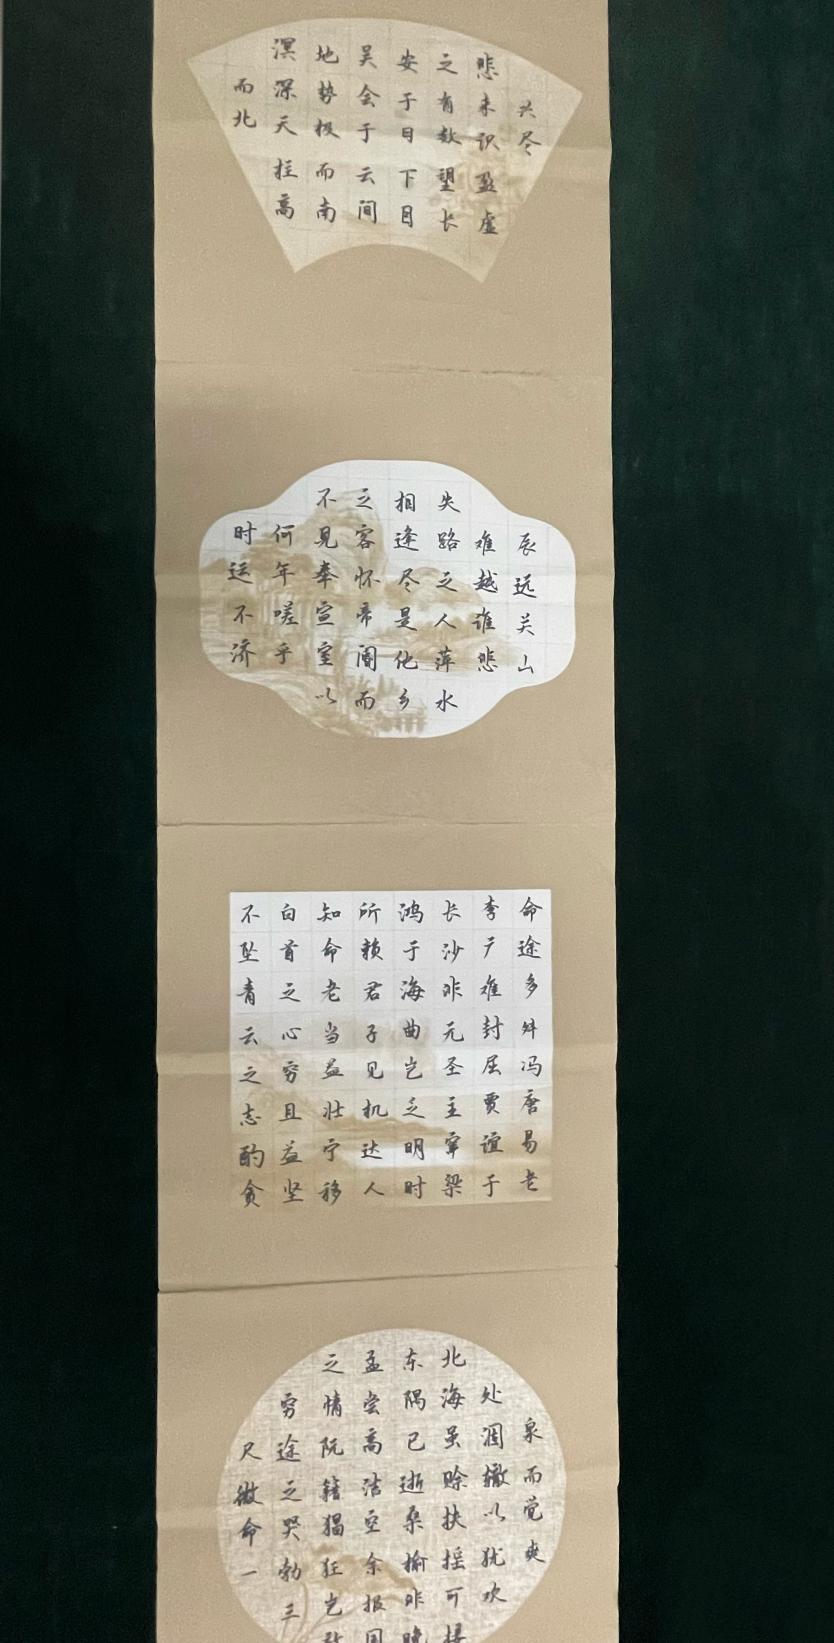 兴尽
悲来识盈虚
之有数望长
安于日下目
吴会于云间
地势极而南
溟深天柱高
而北
辰远关山
难越谁悲
失路之人萍水
相逢尽是他乡
之客怀帝阍而
不见奉宣室以
何年嗟乎
时运不济
命途多舛冯唐易老
李广难封屈贾谊于
长沙非无圣主窜梁
鸿于海曲岂乏明时
所赖君子见机达人
知命老当益壮宁移
白首之心穷且益坚
不坠青云之志酌贪
泉而觉爽
处涸辙以犹欢
北海虽赊扶摇可接
东隅已逝桑榆非晚
孟尝高洁空余报国
之情阮籍猖狂岂效
穷途之哭勃三
尺微命一